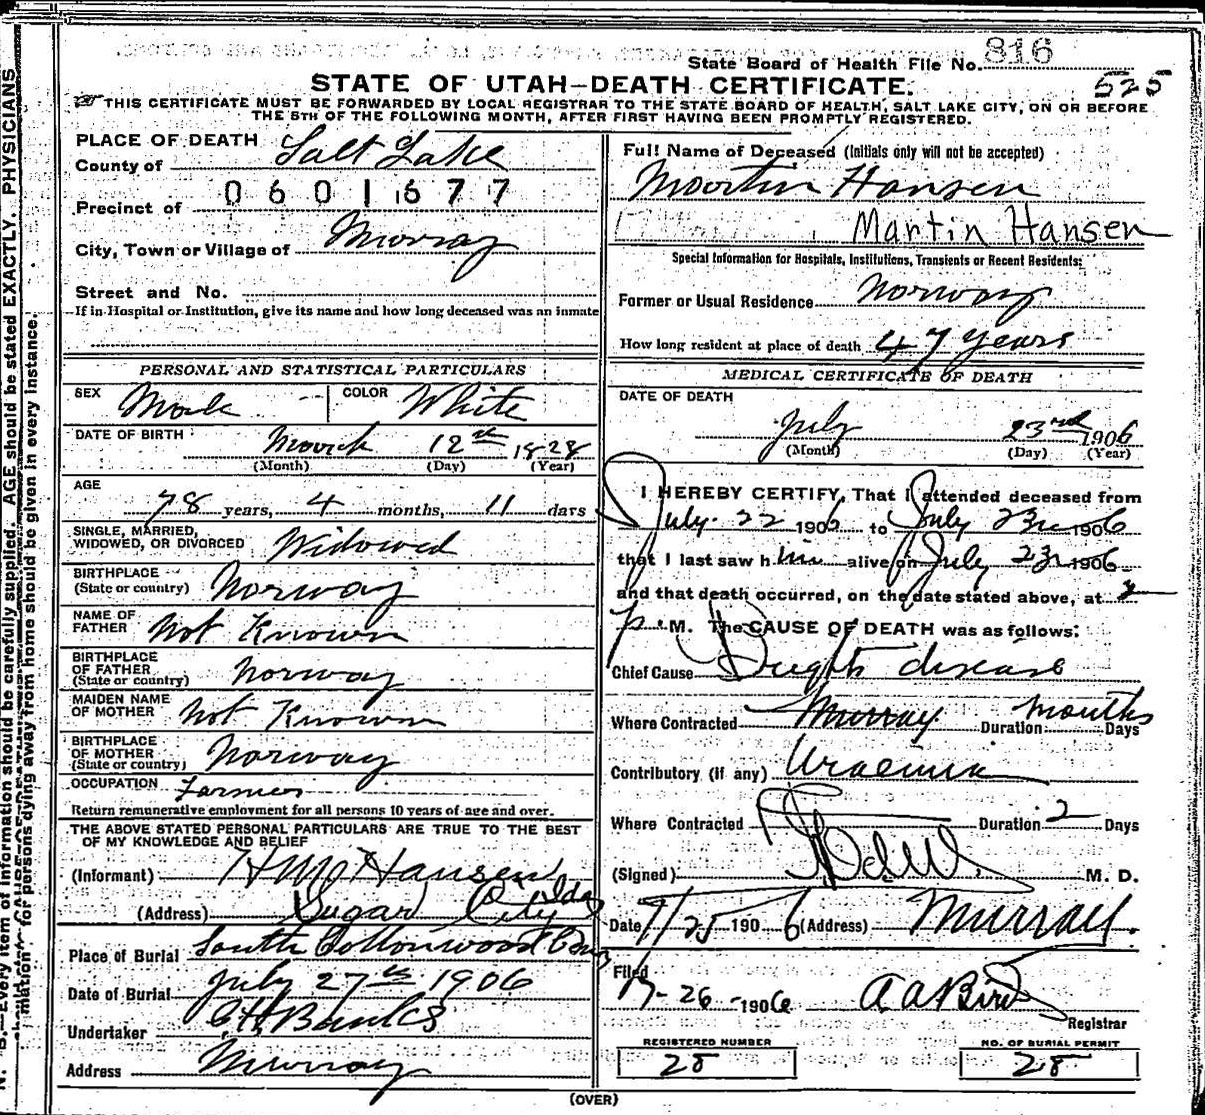 State Board of Health File No. 816
525
STATE OF UTAH—DEATH CERTIFICATE.
THIS CERTIFICATE MUST BE FORWARDED BY LOCAL REGISTRAR TO THE STATE BOARD OF HEALTH, SALT LAKE CITY, ON OR BEFORE
THE 5TH OF THE FOLLOWING MONTH, AFTER FIRST HAVING BEEN PROMPTLY REGISTERED.
PLACE OF DEATH
County of Salt Lake
0601677
Precinct of
City, Town or Village of Murray
Street and No.
If in Hospital or Institution, give its name and how long deceased was an inmate
PERSONAL AND STATISTICAL PARTICULARS
SEX Male COLOR White
DATE OF BIRTH March 12th 1828
(Month) (Day) (Year)
AGE
78 years, 4 months, 11 days
SINGLE, MARRIED,
WIDOWED, OR DIVORCED Widowed
BIRTHPLACE
(State or country) Norway
NAME OF
FATHER Not Known
BIRTHPLACE
OF FATHER
(State or country) Norway
MAIDEN NAME
OF MOTHER Not Known
BIRTHPLACE
OF MOTHER
(State or country) Norway
OCCUPATION Farmer
Return remunerative employment for all persons 10 years of age and over.
THE ABOVE STATED PERSONAL PARTICULARS ARE TRUE TO THE BEST
OF MY KNOWLEDGE AND BELIEF
(Informant) Hansen
(Address) Sugar City Ida
Place of Burial South Cottonwood Cem
Date of Burial July 27th 1906
Undertaker Banks
Address Murray
Full Name of Deceased (Initials only will not be accepted)
Martin Hansen
Martin Hansen
Special Information for Hospitals, Institutions, Transients or Recent Residents:
Former or Usual Residence Norway
How long resident at place of death 47 years
MEDICAL CERTIFICATE OF DEATH
DATE OF DEATH
July 23rd 1906
(Month) (Day) (Year)
I HEREBY CERTIFY, That I attended deceased from
July 22 1906 to July 23r 1906
that I last saw him alive on July 23r 1906
and that death occurred, on the date stated above, at 2
p. M. The CAUSE OF DEATH was as follows:
Chief Cause Bright disease
Where Contracted Murray Duration months Days
Contributory (if any) Uraemia
Where Contracted Duration 2 Days
(Signed) M. D.
Date 7/25 1906 (Address) Murray.
Filed
7-26-1906 A A Bird
Registrar
REGISTERED NUMBER
28
NO. OF BURIAL PERMIT
28
(OVER)
N. B.—Every item of information should be carefully supplied. AGE should be stated EXACTLY. PHYSICIANS
mation for persons dying away from home should be given in every instance.